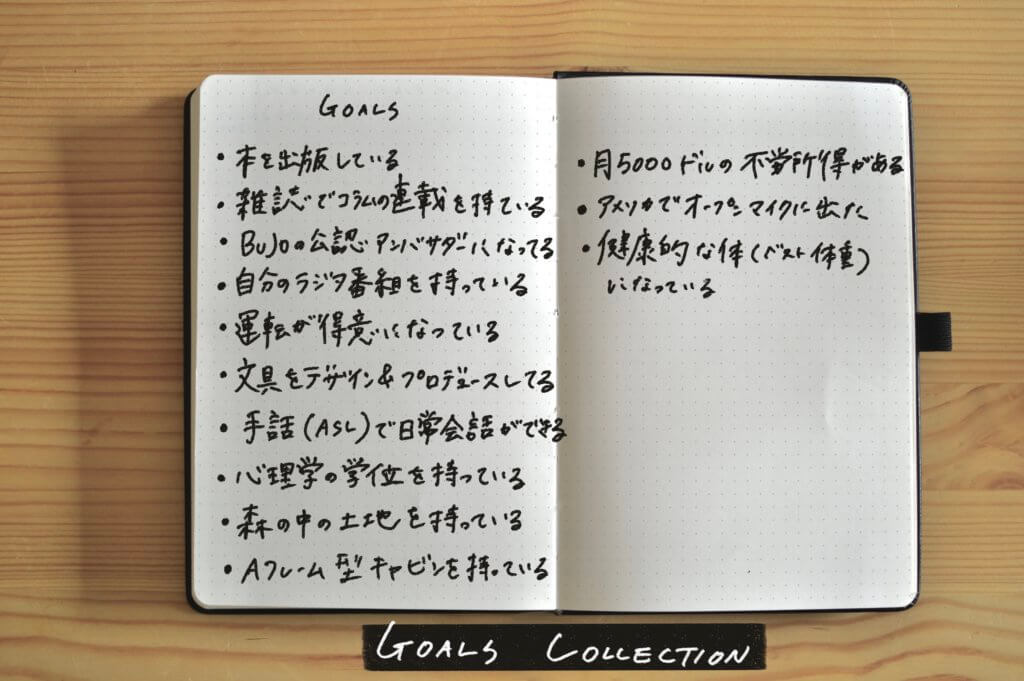 GOALS
• 本を出版している
• 雑誌でコラムの連載を持ている
• BUJOの公認アンバサダーになってる
• 自分のラジオ番組を持っている
• 運転が得意になっている
• 文具をデザイン&プロデュースしてる
• 手話(ASL)で日常会話ができる
• 心理学の学位を持っている
• 森の中の土地を持っている
• Aフレーム型キャビンを持っている
• 月5000ドルの不労所得がある
• アメリカでオープンマイクに出た
• 健康的な体(ベスト体重)
になっている
GOALS COLLECTION